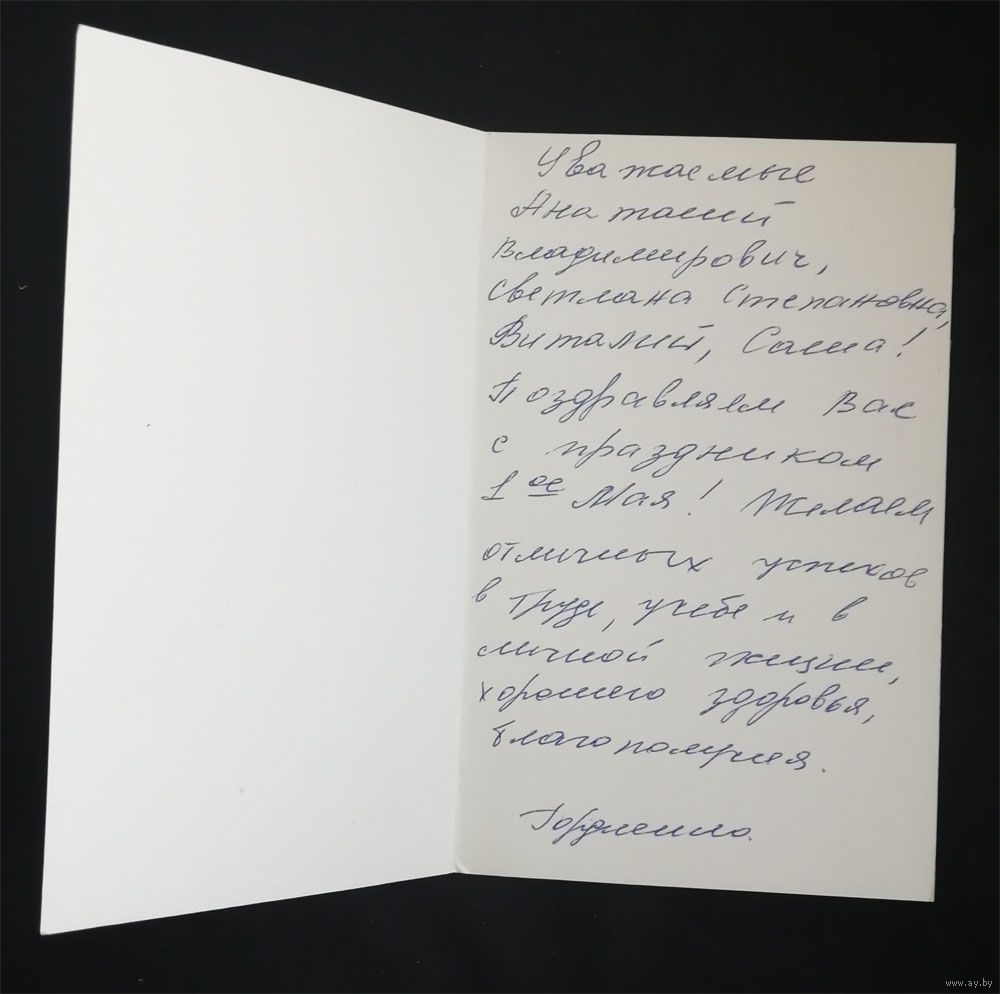 Уважаемые
Анатолий
Владимирович,
Светлана Степановна,
Виталий, Саша!
Поздравляем Вас
с праздником
1ое Мая! Желаем
отличных успехов
в труде, учебе и в
личной жизни,
хорошего здоровья,
благополучия.
www.ay.by